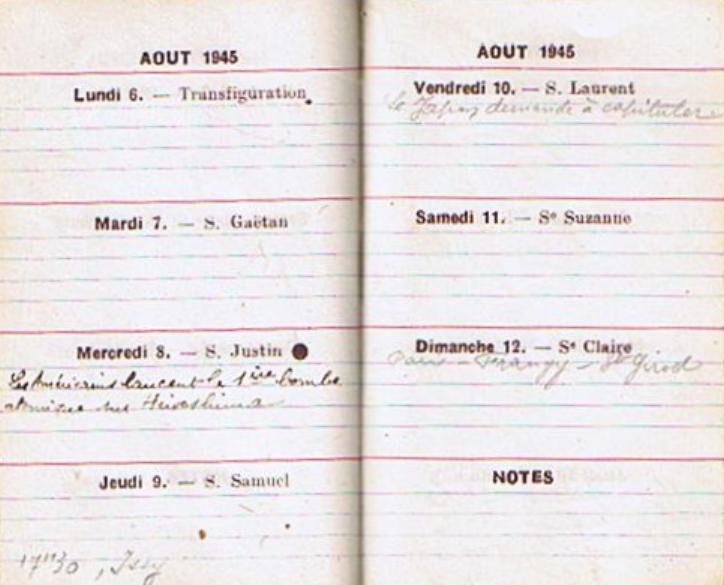 AOUT 1945
Lundi 6. — Transfiguration.
Mardi 7. — S. Gaëtan
Mercredi 8. — S. Justin
Les Américains lancent la 1ière bombe
atomique sur Hiroshima
Jeudi 9. — S. Samuel
17h30, Issy
AOUT 1945
Vendredi 10. — S. Laurent
Le Japon demande à capituler
Samedi 11. — Se Suzanne
Dimanche 12. — Se Claire
Paris - Frangy - St Girod
NOTES